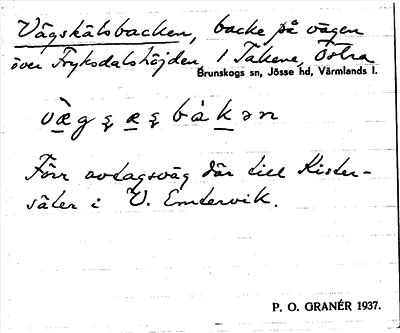 Vägskälsbacken, backe på vägen
över Fryksdalshöjden, 1 Täkene, Östra
Brunskogs sn, Jösse hd, Värmlands l.
Förr avtagsväg där till Kister-
säter i V. Emtervik.
P. O. GRANÉR 1937.